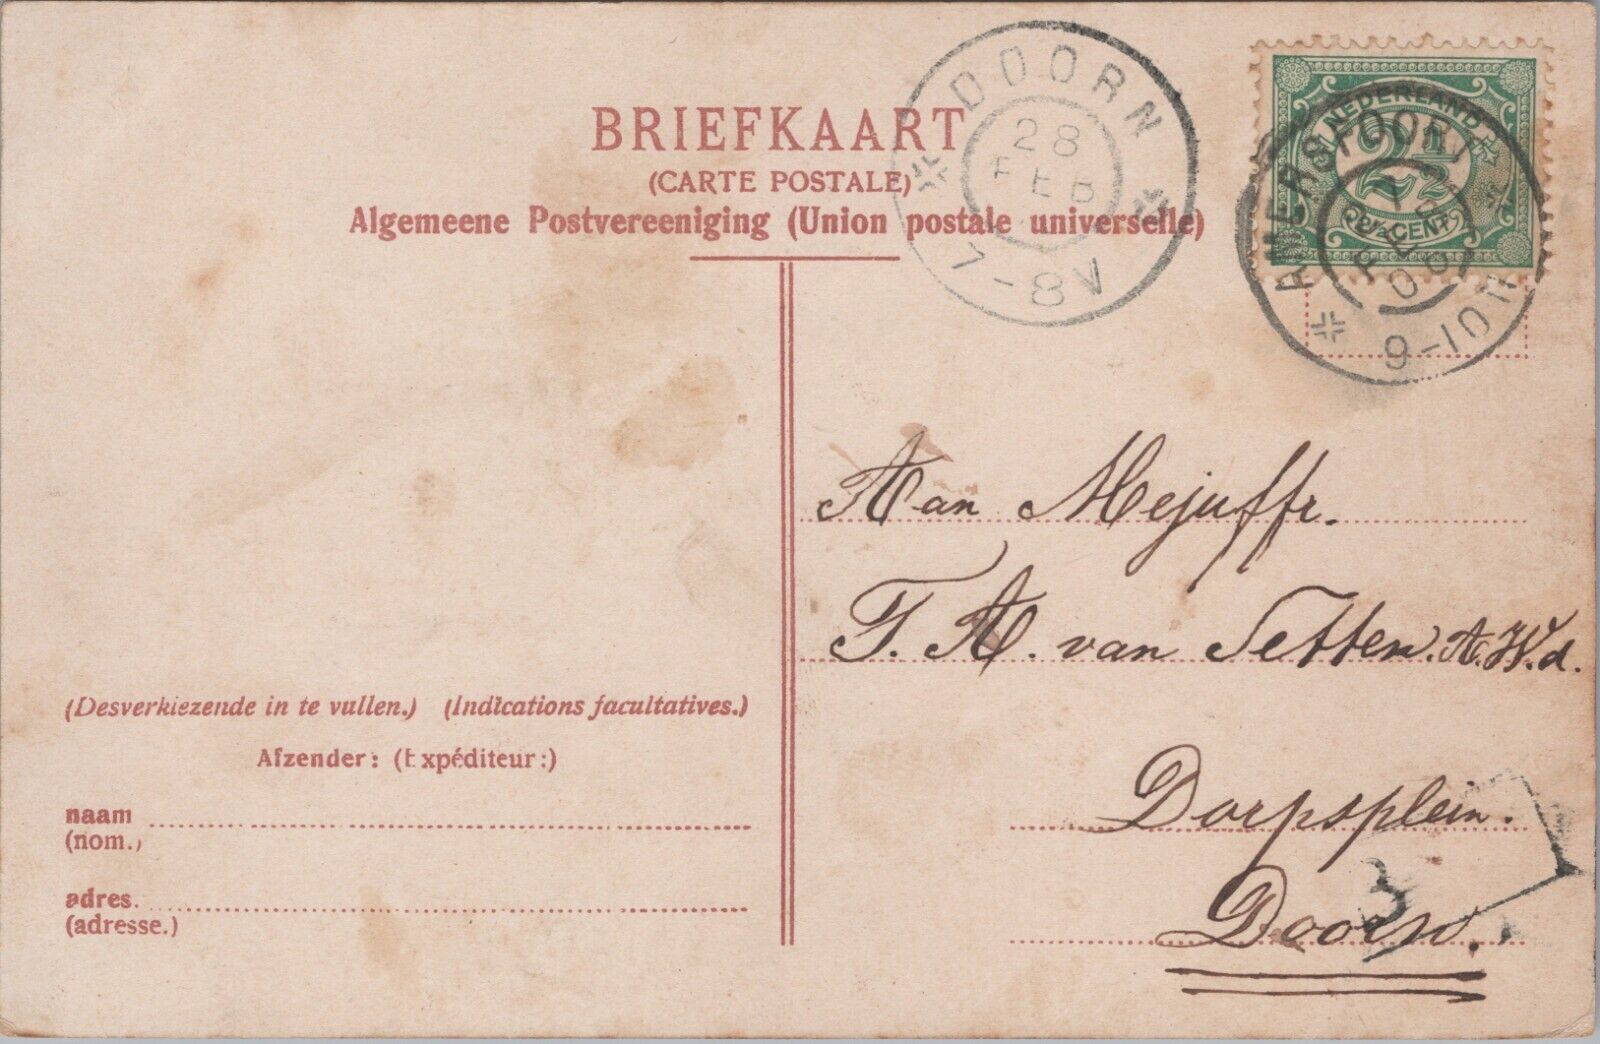 BRIEFKAART
(CARTE POSTALE)
Algemeene Postvereeniging (Union postale universelle)
DOORN
28
FEB
7-8V
NEDERLAND
2½
2½ CENT
AMERSFOORT
FEB
9-10N
Aan Mejuffr.
F. A. van Setten. A.W.d.
Dorpsplein.
Doorn.
3
(Desverkiezende in te vullen.) (Indications facultatives.)
Afzender: (Expéditeur:)
naam
(nom.)
adres.
(adresse.)